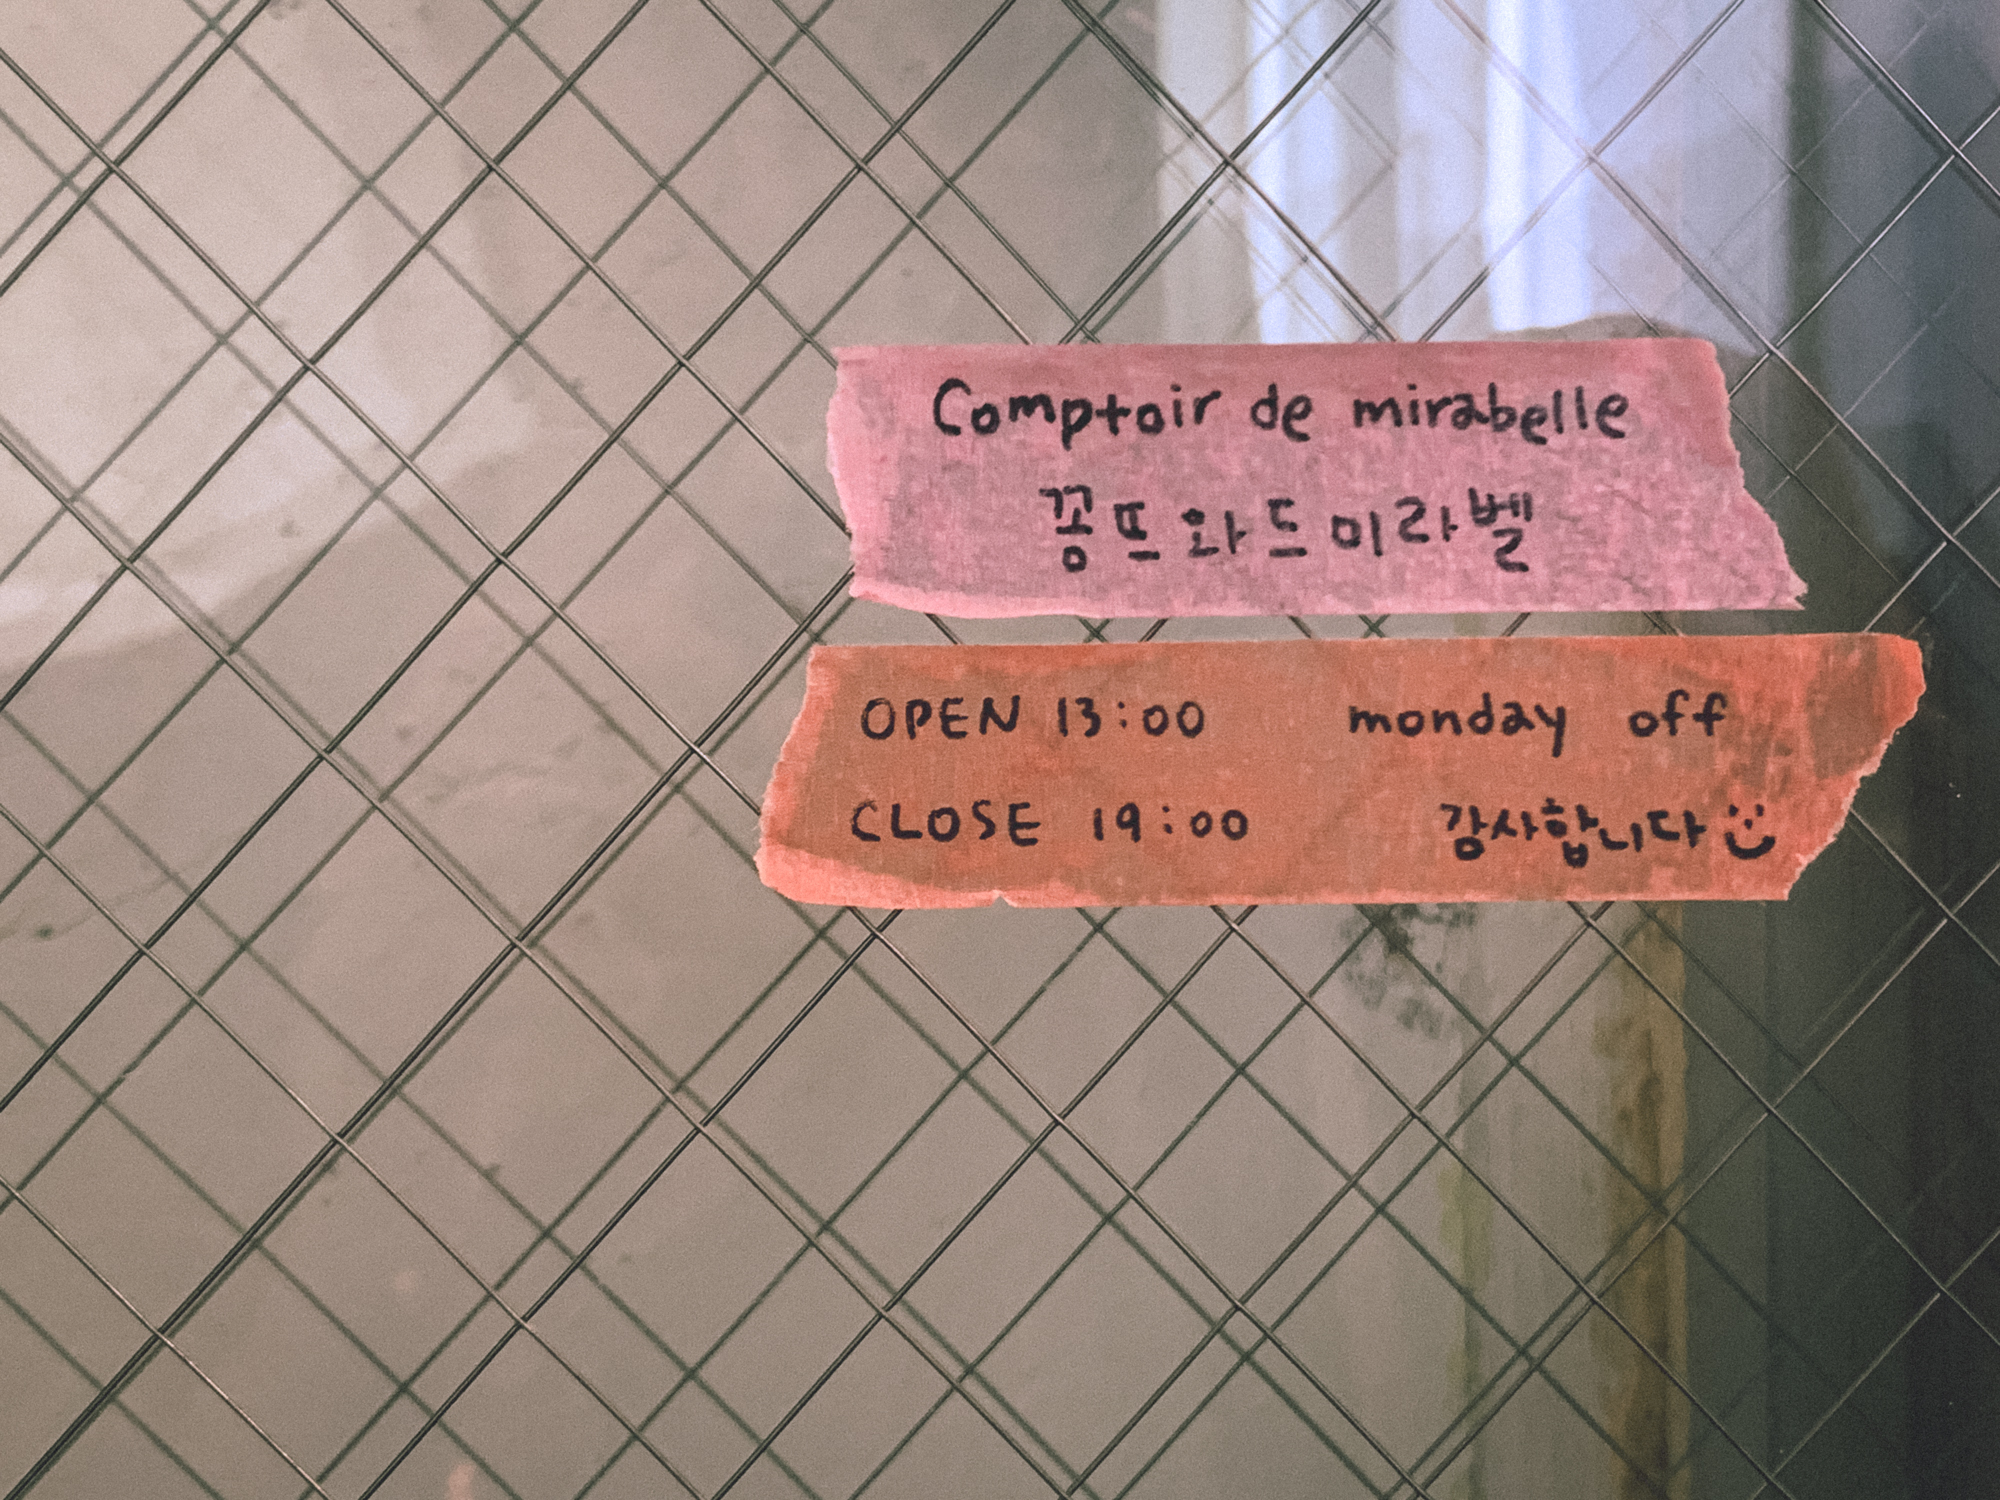 Comptoir de mirabelle
꽁 뜨 와 드 미 라 벨
OPEN 13:00 monday off
CLOSE 19:00 감사합니다